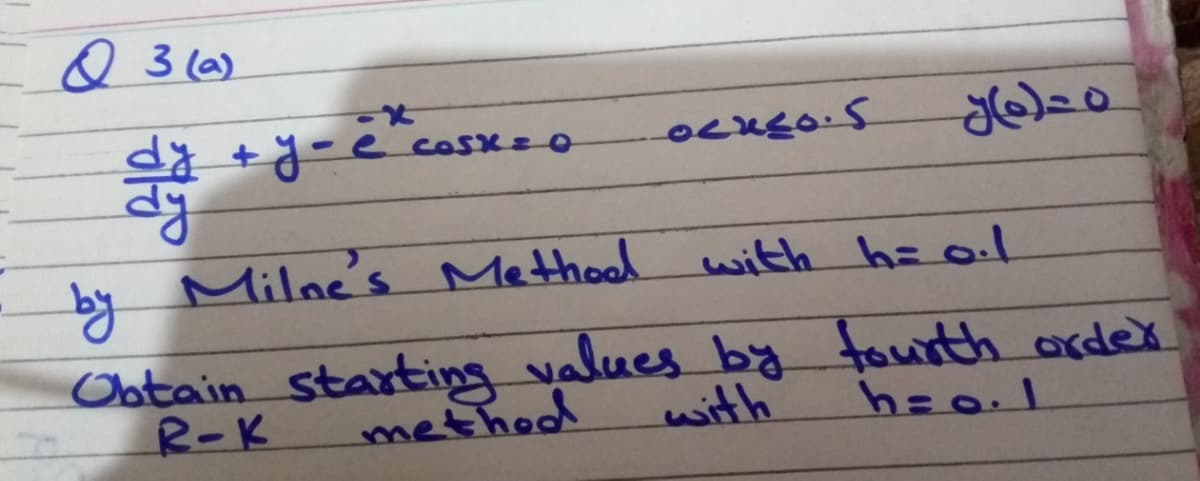 Q 3 (a)
dy/dy + y - e^-x cosx = 0 0<x≤0.5 y(0)=0
by Milne's Method with h= 0.1
Obtain starting values by fourth order
R-K method with h=0.1